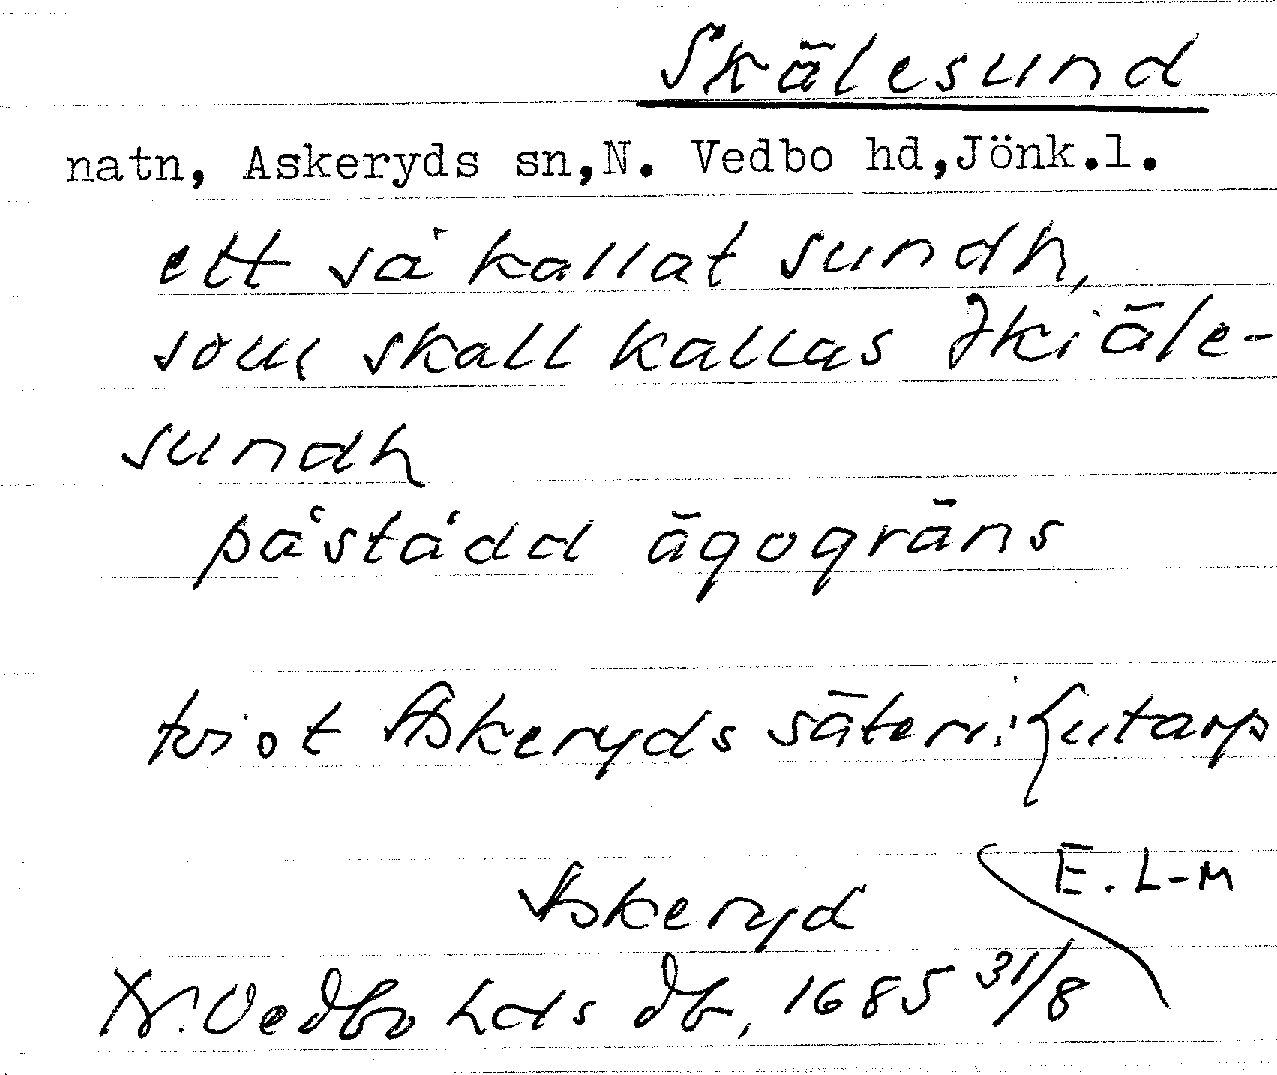 Skälesund
natn, Askeryds sn,N. Vedbo hd,Jönk.l.
ett så kallat sundh,
som skall kallas Skiäle-
sundh
påstådd ägogräns
tvist Askeryds säteri:
Askeryd
E. L-M
N. Vedbo hds db, 1685 31/8